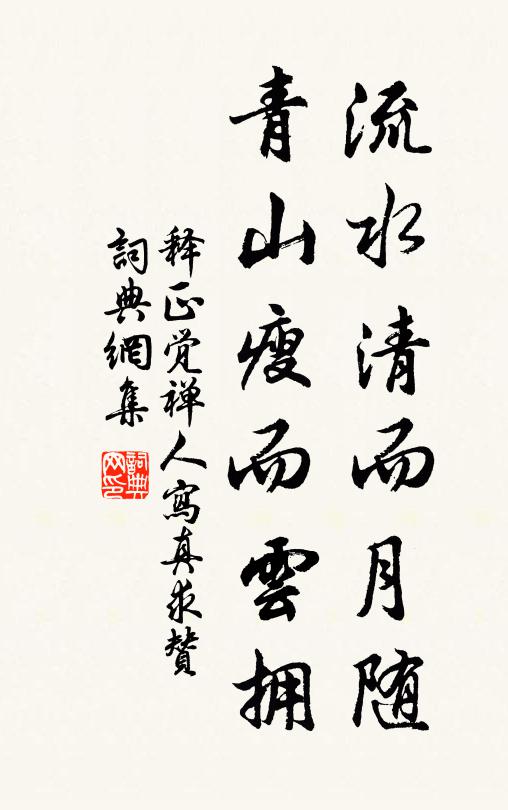 流水清而月随
青山瘦而雲拥
释正觉禅人寫真求贊
詞典網集
詞典网印